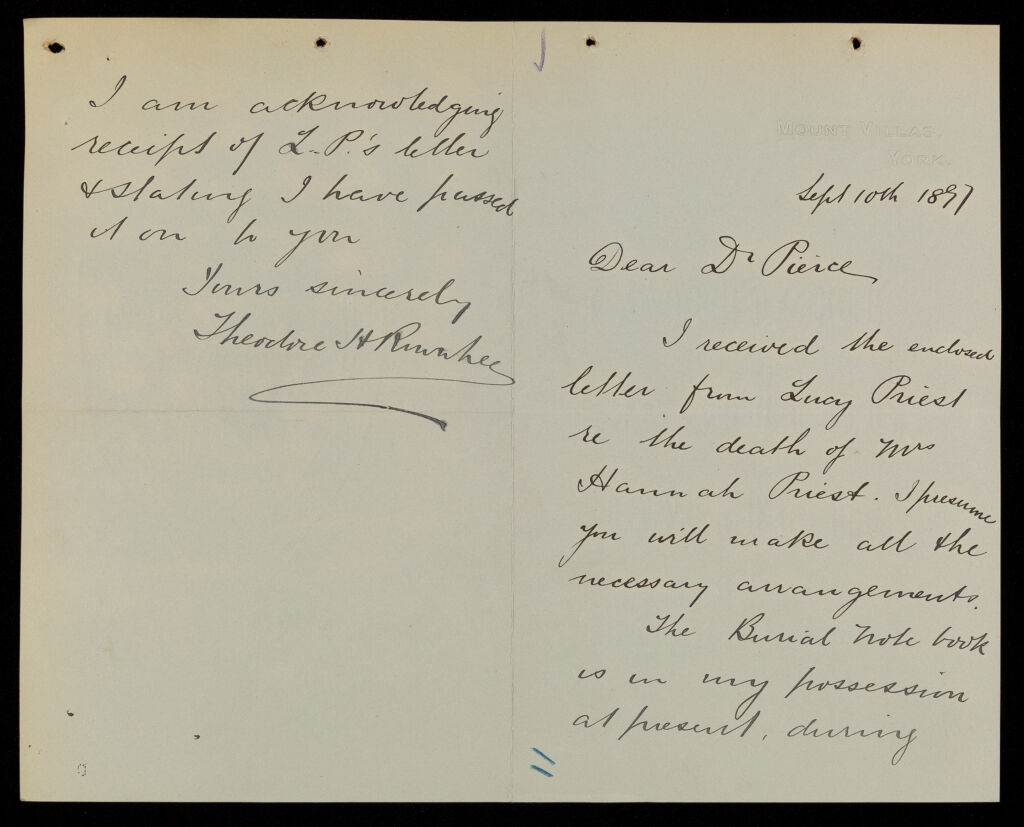 MOUNT VILLAS.
YORK.
Sept 10th 1897
Dear Dr Pierce
I received the enclosed
letter from Lucy Priest
re the death of Mrs
Hannah Priest. I presume
you will make all the
necessary arrangements.
The Burial Note book
is in my possession
at present, during
I am acknowledging
receipt of L.P.'s letter
& stating I have passed
it on to you
Yours sincerely
Theodore H Rowntree